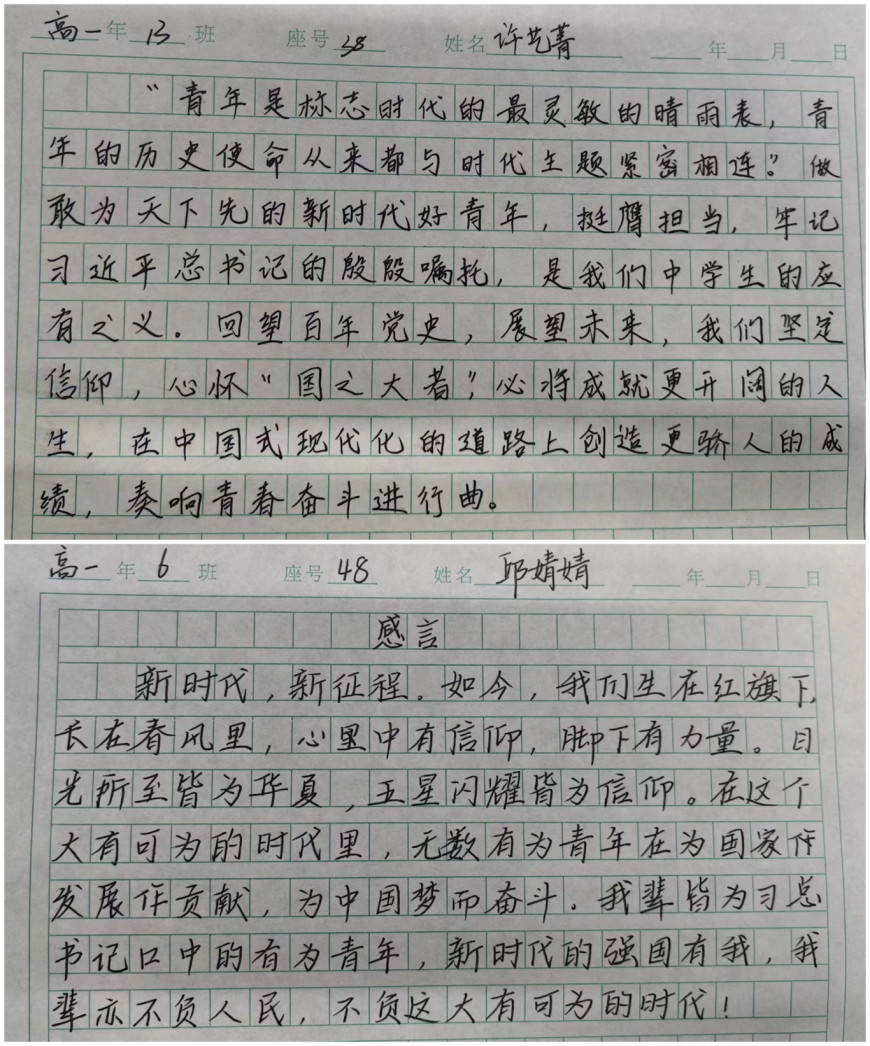 高一年 13 班 座号 38 姓名 许艺菁 年 月 日
“青年是标志时代的最灵敏的晴雨表，青
年的历史使命从来都与时代主题紧密相连”。做
敢为天下先的新时代好青年，挺膺担当，牢记
习近平总书记的殷殷嘱托，是我们中学生的应
有之义。回望百年党史，展望未来，我们坚定
信仰，心怀“国之大者”，必将成就更开阔的人
生，在中国式现代化的道路上创造更骄人的成
绩，奏响青春奋斗进行曲。
高一年 6 班 座号 48 姓名 邱婧婧 年 月 日
感言
新时代，新征程。如今，我们生在红旗下，
长在春风里，心里中有信仰，脚下有力量。目
光所至皆为华夏，五星闪耀皆为信仰。在这个
大有可为的时代里，无数有为青年在为国家作
发展作贡献，为中国梦而奋斗。我辈皆为习总
书记口中的有为青年，新时代的强国有我，我
辈亦不负人民，不负这大有可为的时代！